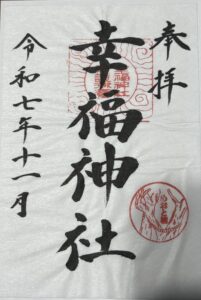 奉拝
幸福神社
令和七年十一月